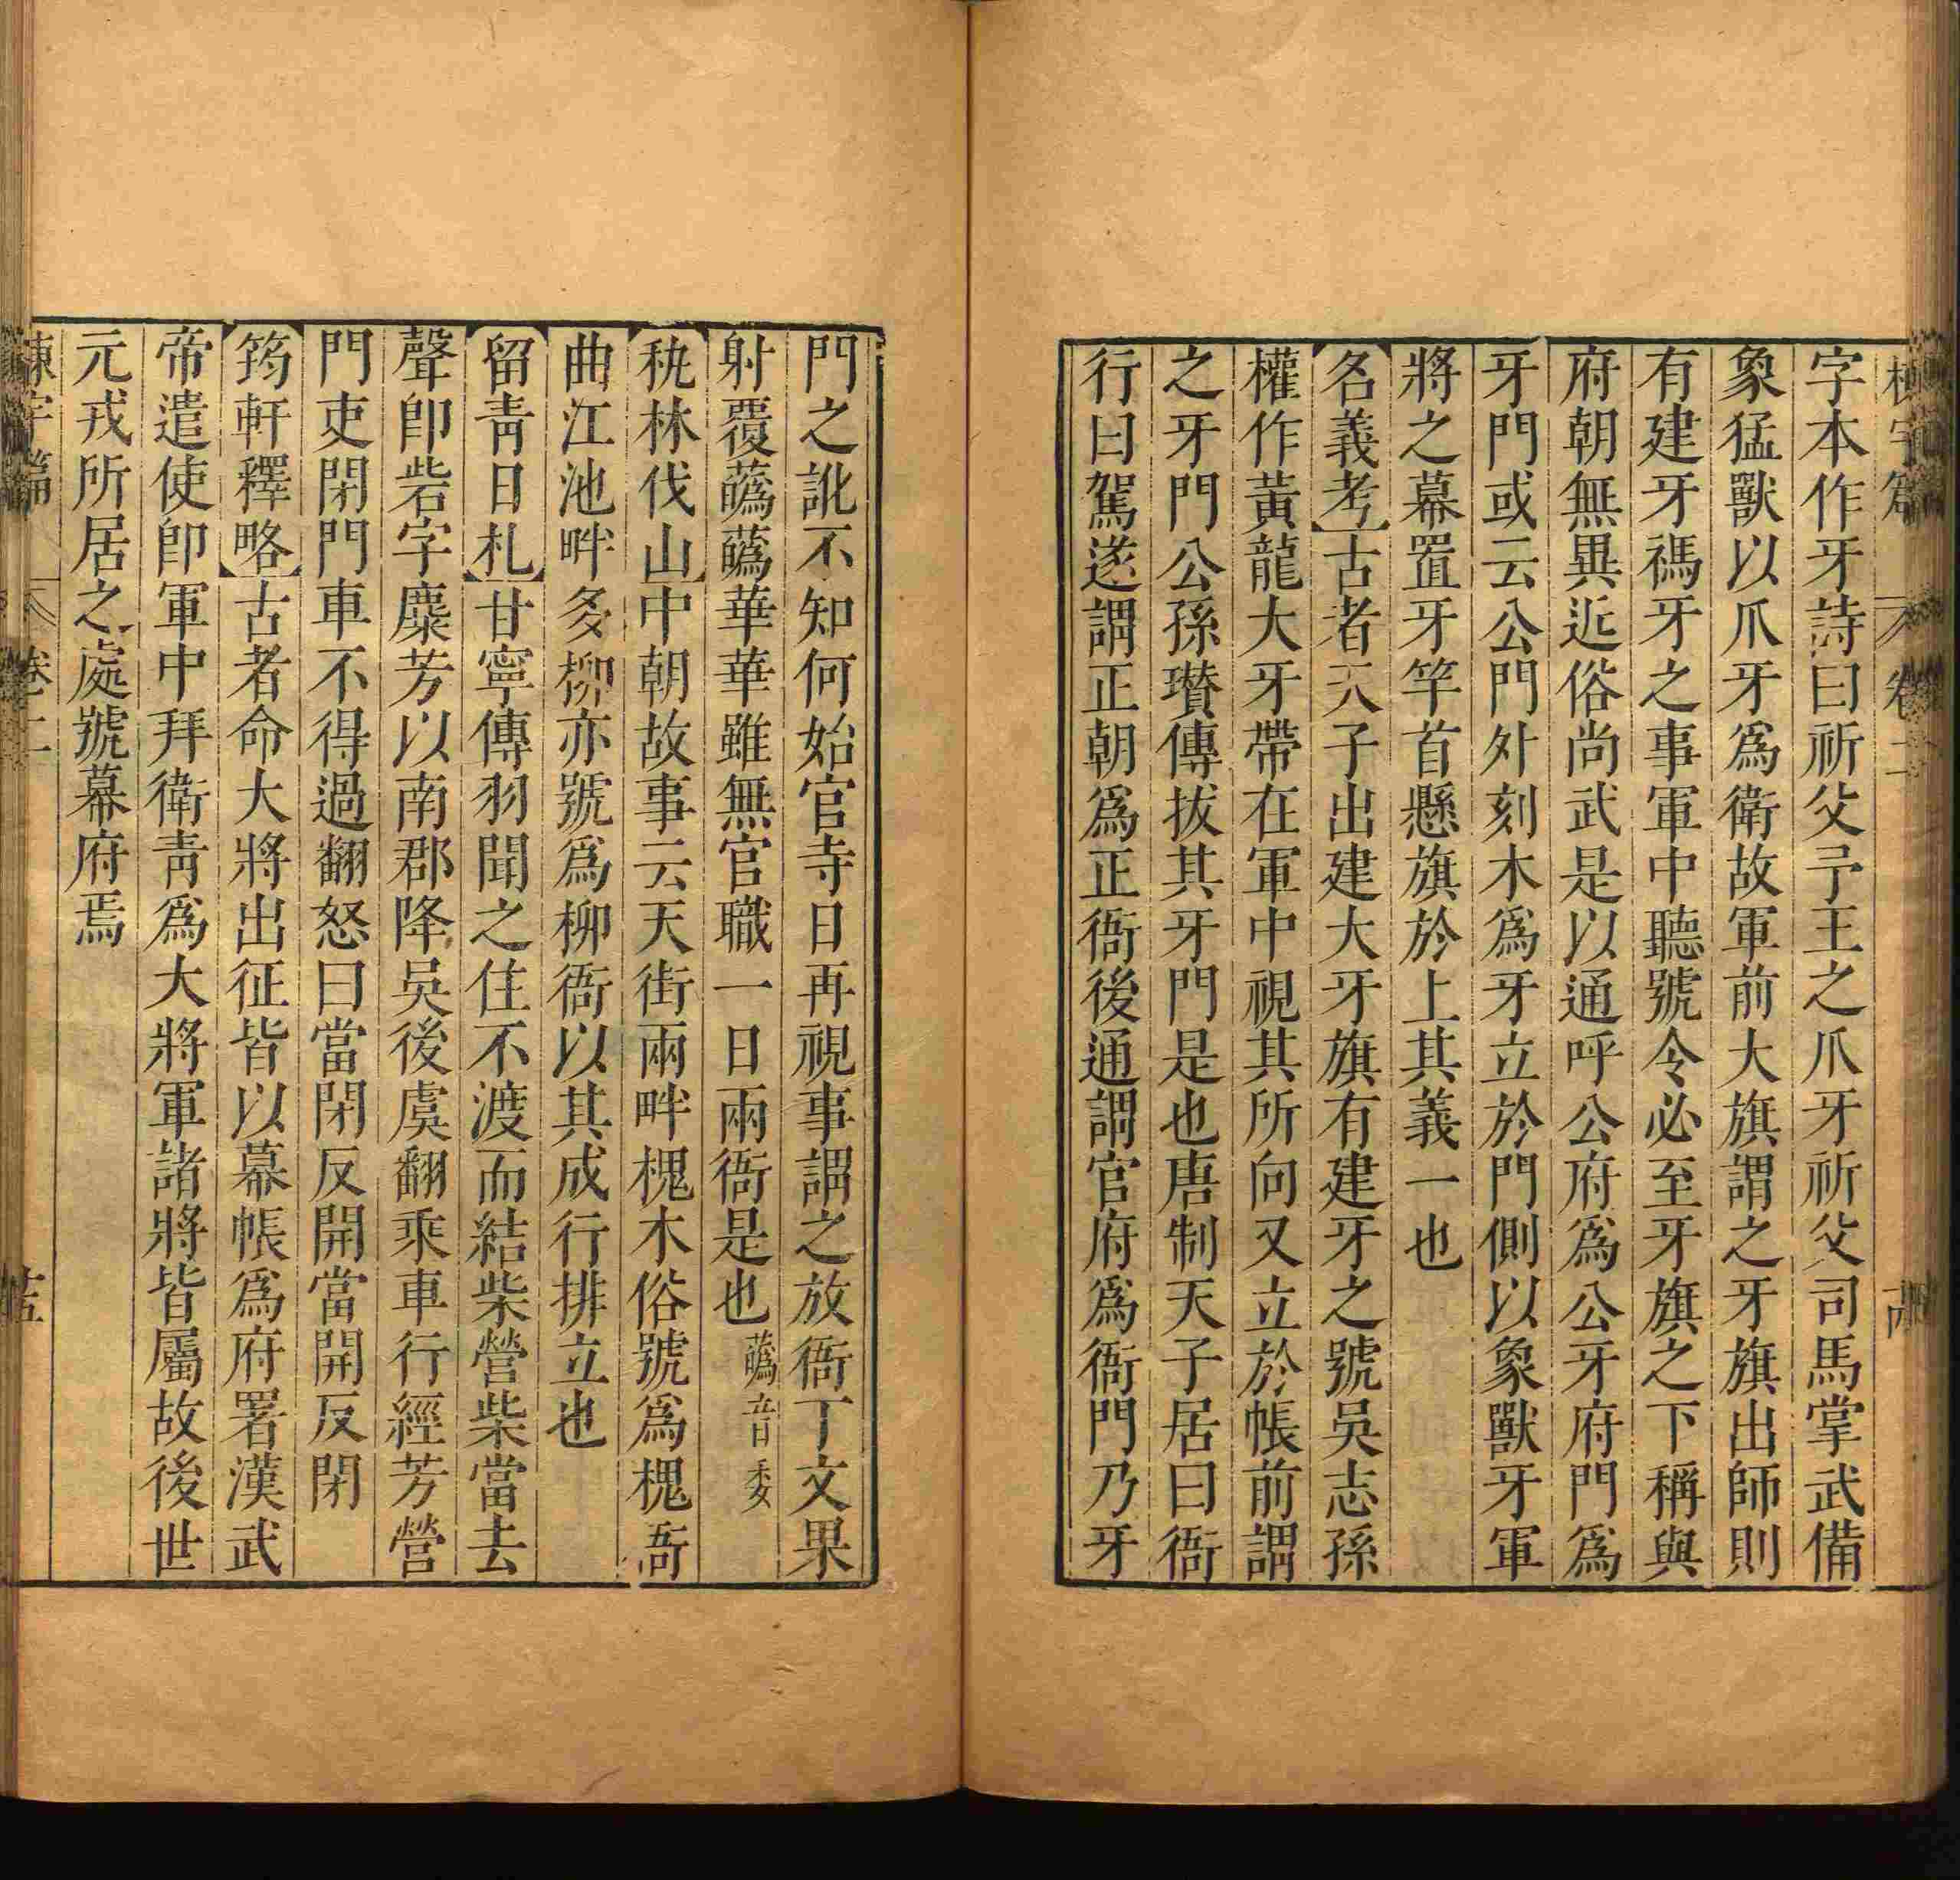 字本作牙詩曰祈父予王之爪牙祈父司馬掌武備
象猛獸以爪牙爲衛故軍前大旗謂之牙旗出師則
有建牙禡牙之事軍中聽號令必至牙旗之下稱與
府朝無異近俗尚武是以通呼公府爲公牙府門爲
牙門或云公門外刻木爲牙立於門側以象獸牙軍
將之幕置牙竿首懸旗於上其義一也
名義考】古者天子出建大牙旗有建牙之號吳志孫
權作黃龍大牙帶在軍中視其所向又立於帳前謂
之牙門公孫瓚傳拔其牙門是也唐制天子居曰衙
行曰駕遂謂正朝爲正衙後通謂官府爲衙門乃牙
門之訛不知何始官寺日再視事謂之放衙丁文果
射覆蘤蘤華華雖無官職一日兩衙是也蘤音委
秇林伐山】中朝故事云天街兩畔槐木俗號爲槐衙
曲江池畔多柳亦號爲柳衙以其成行排立也
留青日札】甘寧傳羽聞之住不渡而結柴營柴當去
聲卽砦字麋芳以南郡降吳後虞翻乘車行經芳營
門吏閉門車不得過翻怒曰當閉反開當開反閉
筠軒釋略】古者命大將出征皆以幕帳爲府署漢武
帝遣使卽軍中拜衛青爲大將軍諸將皆屬故後世
元戎所居之處號幕府焉